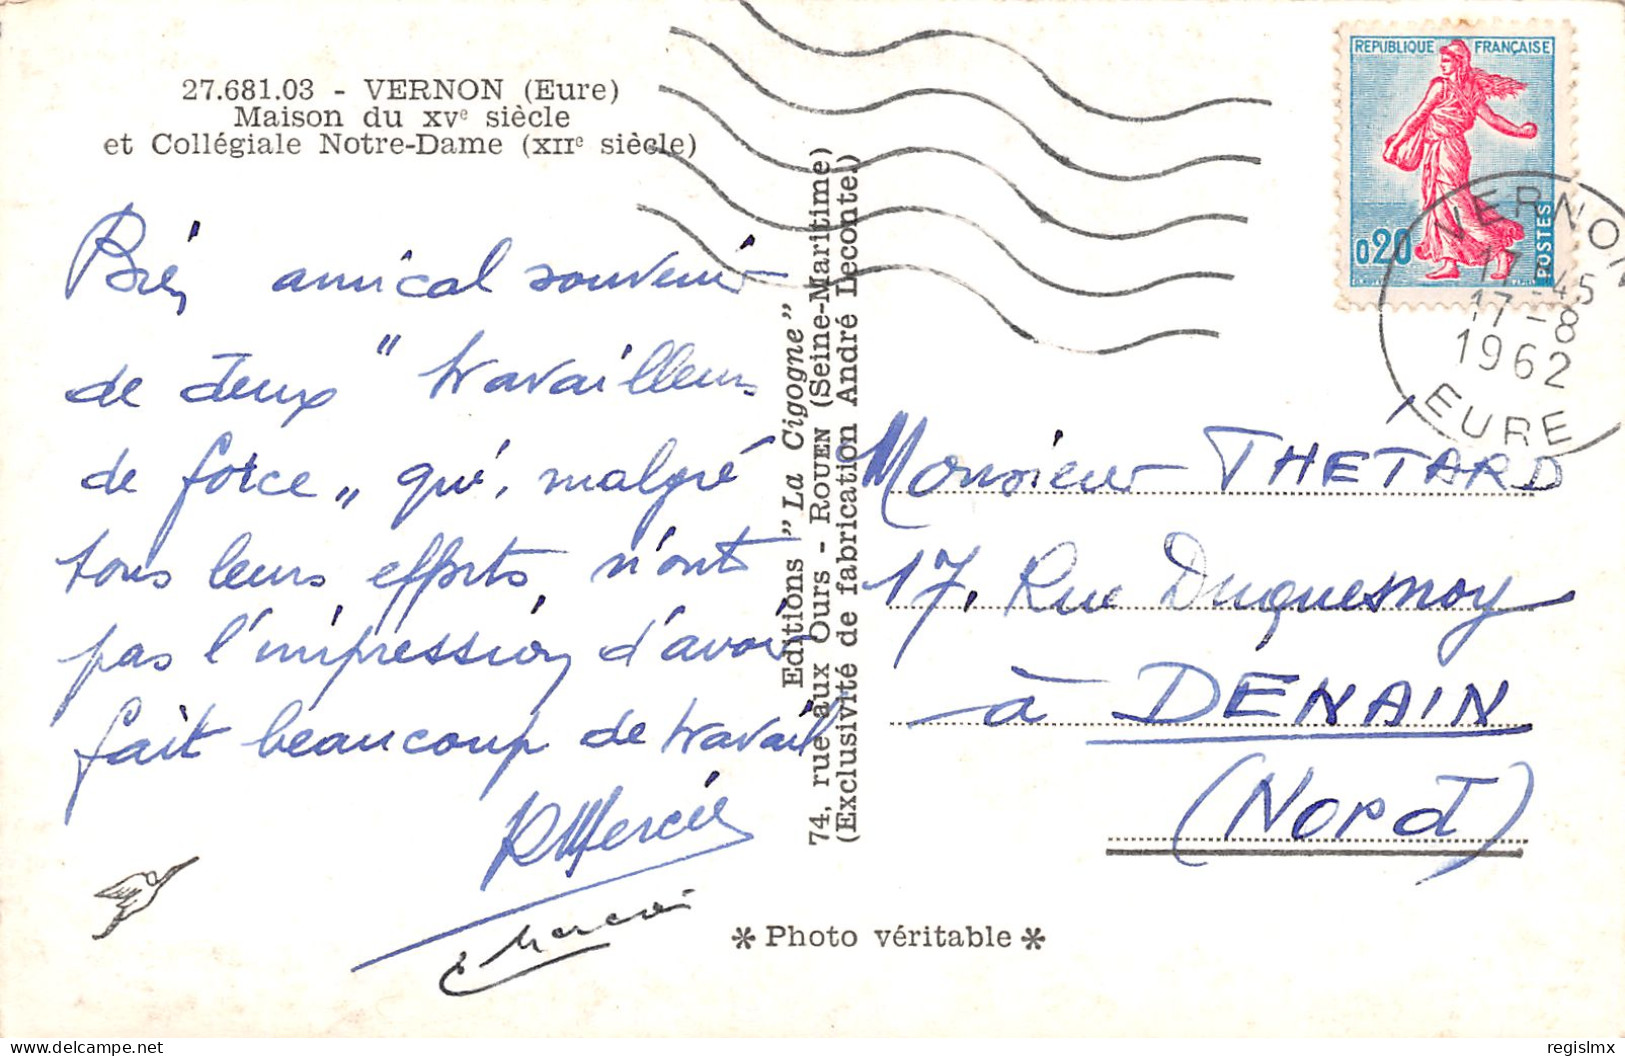 27.681.03 - VERNON (Eure)
Maison du XVe siècle
et Collégiale Notre-Dame (XIIe siècle)
Bien amical souvenir
de deux " travailleurs
de force „ qui, malgré
tous leurs efforts, n'ont
pas l'impression d'avoir
fait beaucoup de travail
Mercier
Editions "La Cigogne"
74, rue aux Ours - ROUEN (Seine-Maritime)
(Exclusivité de fabrication André Leconte)
REPUBLIQUE FRANÇAISE
0,20
POSTES
VERNON
17-45
17-8
1962
EURE
Monsieur THETARD
17, Rue Duquesnoy
à DENAIN
(Nord)
* Photo véritable *
Delcampe.net
regislmx